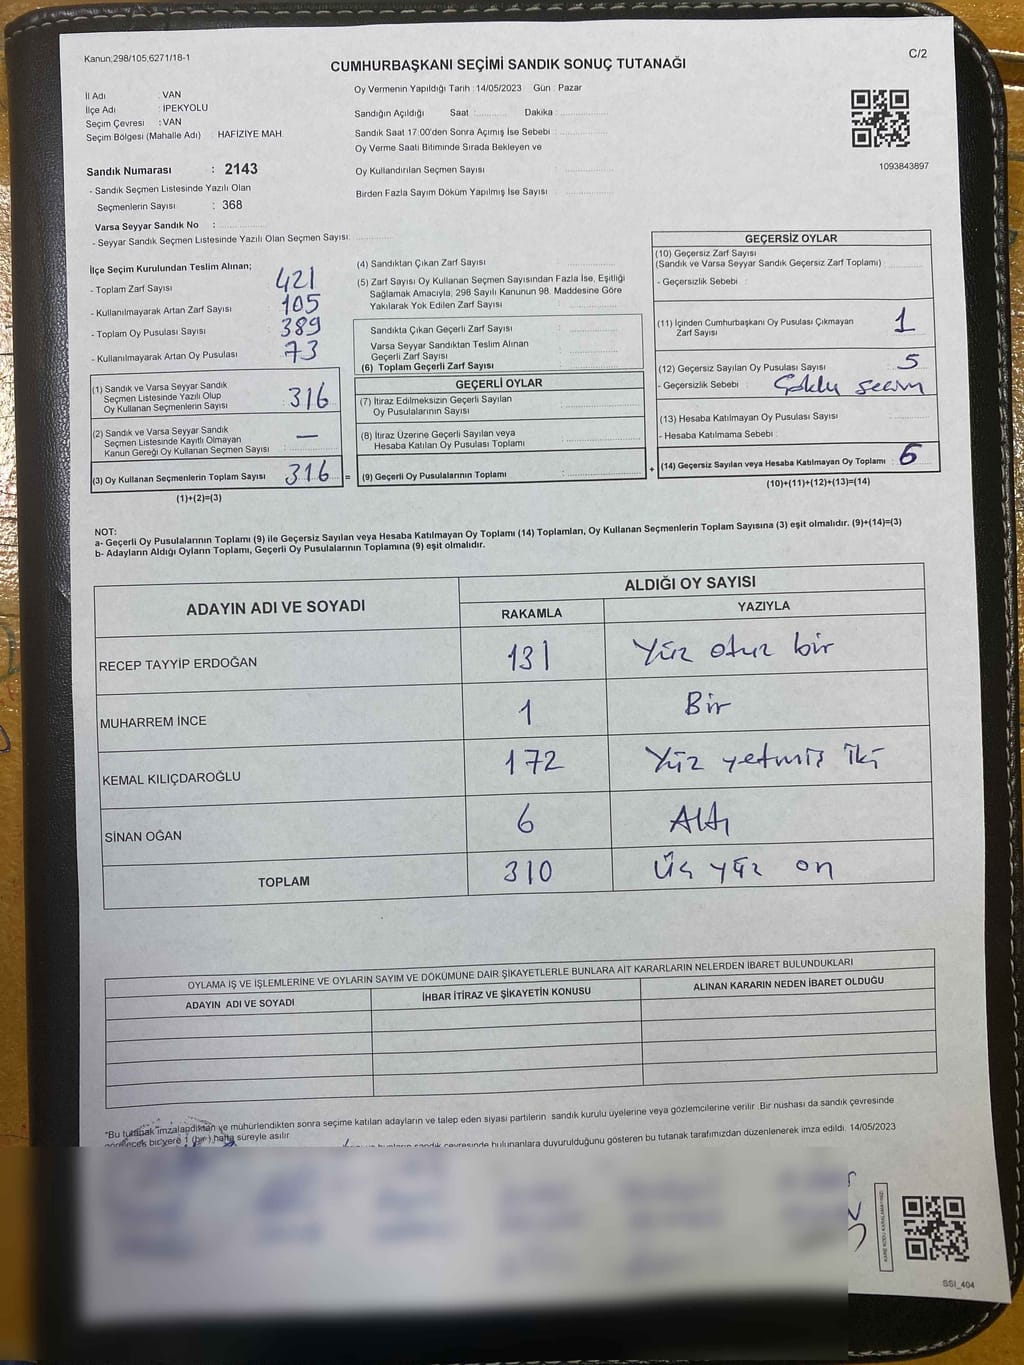 Kanun;298/105,6271/18-1
C/2
CUMHURBAŞKANI SEÇİMİ SANDIK SONUÇ TUTANAĞI
İl Adı : VAN
İlçe Adı : İPEKYOLU
Seçim Çevresi : VAN
Seçim Bölgesi (Mahalle Adı) : HAFİZİYE MAH.
Sandık Numarası : 2143
- Sandık Seçmen Listesinde Yazılı Olan
Seçmenlerin Sayısı : 368
Varsa Seyyar Sandık No :
- Seyyar Sandık Seçmen Listesinde Yazılı Olan Seçmen Sayısı:
Oy Vermenin Yapıldığı Tarih : 14/05/2023 Gün : Pazar
Sandığın Açıldığı Saat Dakika :
Sandık Saat 17:00'den Sonra Açımış İse Sebebi :
Oy Verme Saati Bitiminde Sırada Bekleyen ve
Oy Kullandırılan Seçmen Sayısı :
Birden Fazla Sayım Döküm Yapılmış İse Sayısı :
1093843897
İlçe Seçim Kurulundan Teslim Alınan;
- Toplam Zarf Sayısı : 421
- Kullanılmayarak Artan Zarf Sayısı : 105
- Toplam Oy Pusulası Sayısı : 389
- Kullanılmayarak Artan Oy Pusulası : 73
(1) Sandık ve Varsa Seyyar Sandık
Seçmen Listesinde Yazılı Olup
Oy Kullanan Seçmenlerin Sayısı : 316
(2) Sandık ve Varsa Seyyar Sandık
Seçmen Listesinde Kayıtlı Olmayan
Kanun Gereği Oy Kullanan Seçmen Sayısı : —
(3) Oy Kullanan Seçmenlerin Toplam Sayısı : 316 =
(1)+(2)=(3)
(4) Sandıktan Çıkan Zarf Sayısı :
(5) Zarf Sayısı Oy Kullanan Seçmen Sayısından Fazla İse, Eşitliği
Sağlamak Amacıyla, 298 Sayılı Kanunun 98. Maddesine Göre
Yakılarak Yok Edilen Zarf Sayısı :
Sandıkta Çıkan Geçerli Zarf Sayısı :
Varsa Seyyar Sandıktan Teslim Alınan
Geçerli Zarf Sayısı :
(6) Toplam Geçerli Zarf Sayısı :
GEÇERLİ OYLAR
(7) İtiraz Edilmeksizin Geçerli Sayılan
Oy Pusulalarının Sayısı :
(8) İtiraz Üzerine Geçerli Sayılan veya
Hesaba Katılan Oy Pusulası Toplamı :
(9) Geçerli Oy Pusulalarının Toplamı : +
GEÇERSİZ OYLAR
(10) Geçersiz Zarf Sayısı
(Sandık ve Varsa Seyyar Sandık Geçersiz Zarf Toplamı) :
- Geçersizlik Sebebi :
(11) İçinden Cumhurbaşkanı Oy Pusulası Çıkmayan
Zarf Sayısı : 1
(12) Geçersiz Sayılan Oy Pusulası Sayısı : 5
- Geçersizlik Sebebi : Çoklu seçim
(13) Hesaba Katılmayan Oy Pusulası Sayısı :
- Hesaba Katılmama Sebebi :
(14) Geçersiz Sayılan veya Hesaba Katılmayan Oy Toplamı : 6
(10)+(11)+(12)+(13)=(14)
NOT:
a- Geçerli Oy Pusulalarının Toplamı (9) ile Geçersiz Sayılan veya Hesaba Katılmayan Oy Toplamı (14) Toplamları, Oy Kullanan Seçmenlerin Toplam Sayısına (3) eşit olmalıdır. (9)+(14)=(3)
b- Adayların Aldığı Oyların Toplamı, Geçerli Oy Pusulalarının Toplamına (9) eşit olmalıdır.
ADAYIN ADI VE SOYADI
ALDIĞI OY SAYISI
RAKAMLA YAZIYLA
RECEP TAYYİP ERDOĞAN 131 Yüz otuz bir
MUHARREM İNCE 1 Bir
KEMAL KILIÇDAROĞLU 172 Yüz yetmiş iki
SİNAN OĞAN 6 Altı
TOPLAM 310 Üç yüz on
OYLAMA İŞ VE İŞLEMLERİNE VE OYLARIN SAYIM VE DÖKÜMÜNE DAİR ŞİKAYETLERLE BUNLARA AİT KARARLARIN NELERDEN İBARET BULUNDUKLARI
ADAYIN ADI VE SOYADI İHBAR İTİRAZ VE ŞİKAYETİN KONUSU ALINAN KARARIN NEDEN İBARET OLDUĞU
*Bu tutanak imzalandıktan ve mühürlendikten sonra seçime katılan adayların ve talep eden siyasi partilerin sandık kurulu üyelerine veya gözlemcilerine verilir. Bir nüshası da sandık çevresinde
görülecek bir yere 1 (bir) hafta süreyle asılır.
sandık çevresinde bulunanlara duyurulduğunu gösteren bu tutanak tarafımızdan düzenlenerek imza edildi. 14/05/2023
SSI_404